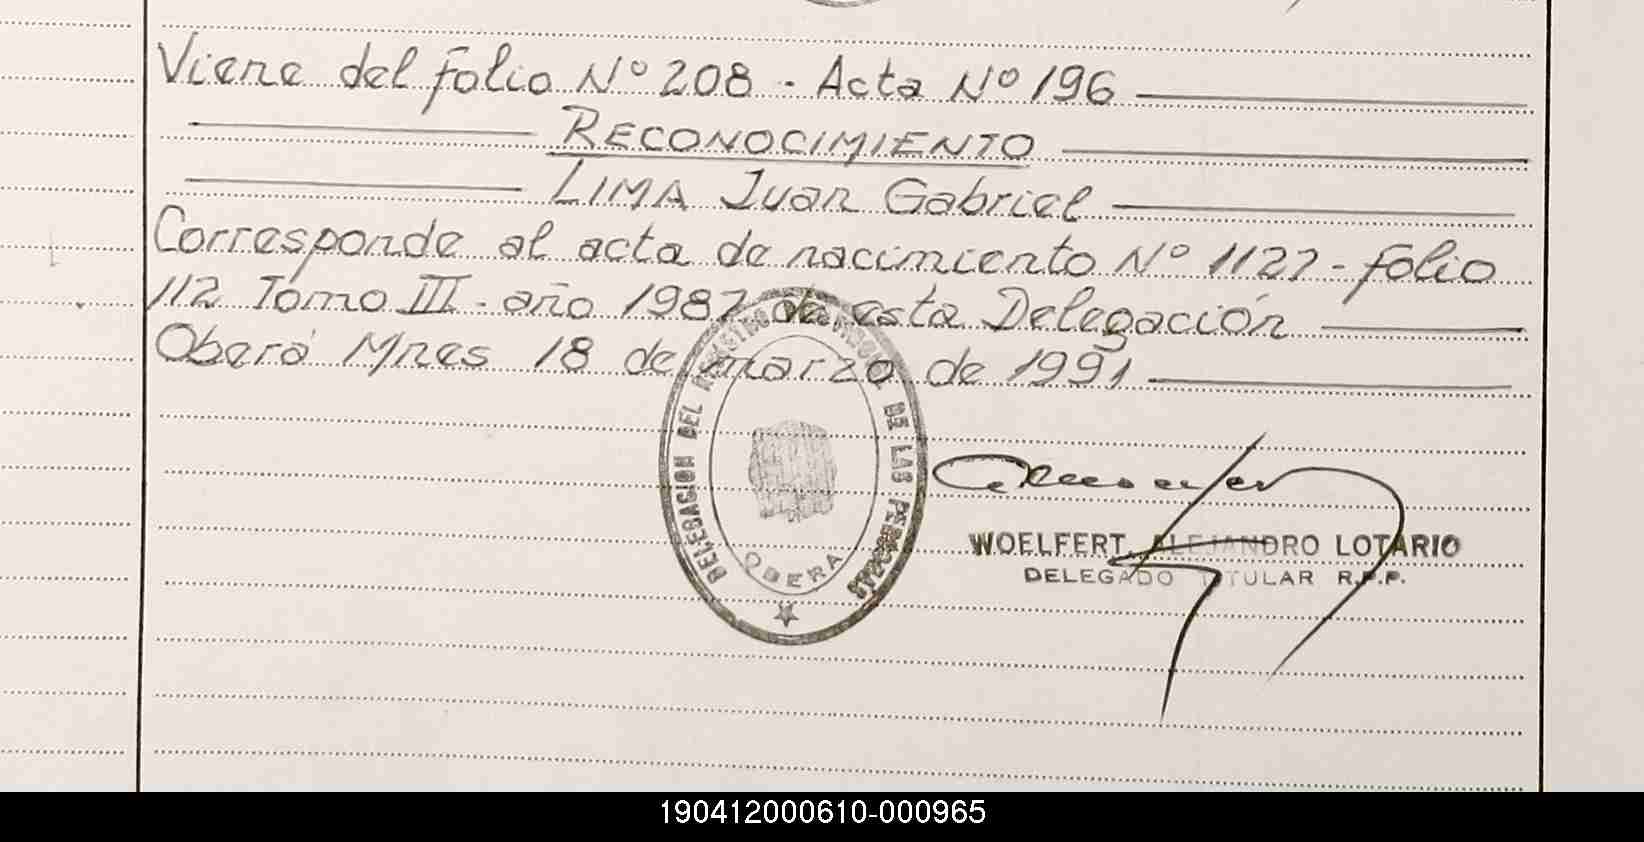 Viene del folio Nº 208 - Acta Nº 196
RECONOCIMIENTO
LIMA Juan Gabriel
Corresponde al acta de nacimiento Nº 1127 - folio
112 Tomo III - año 1987 de esta Delegación
Oberá Mnes 18 de marzo de 1991
DELEGACION DEL REGISTRO DE LAS PERSONAS
OBERA
WOELFERT, ALEJANDRO LOTARIO
DELEGADO TITULAR R.P.P.
190412000610-000965